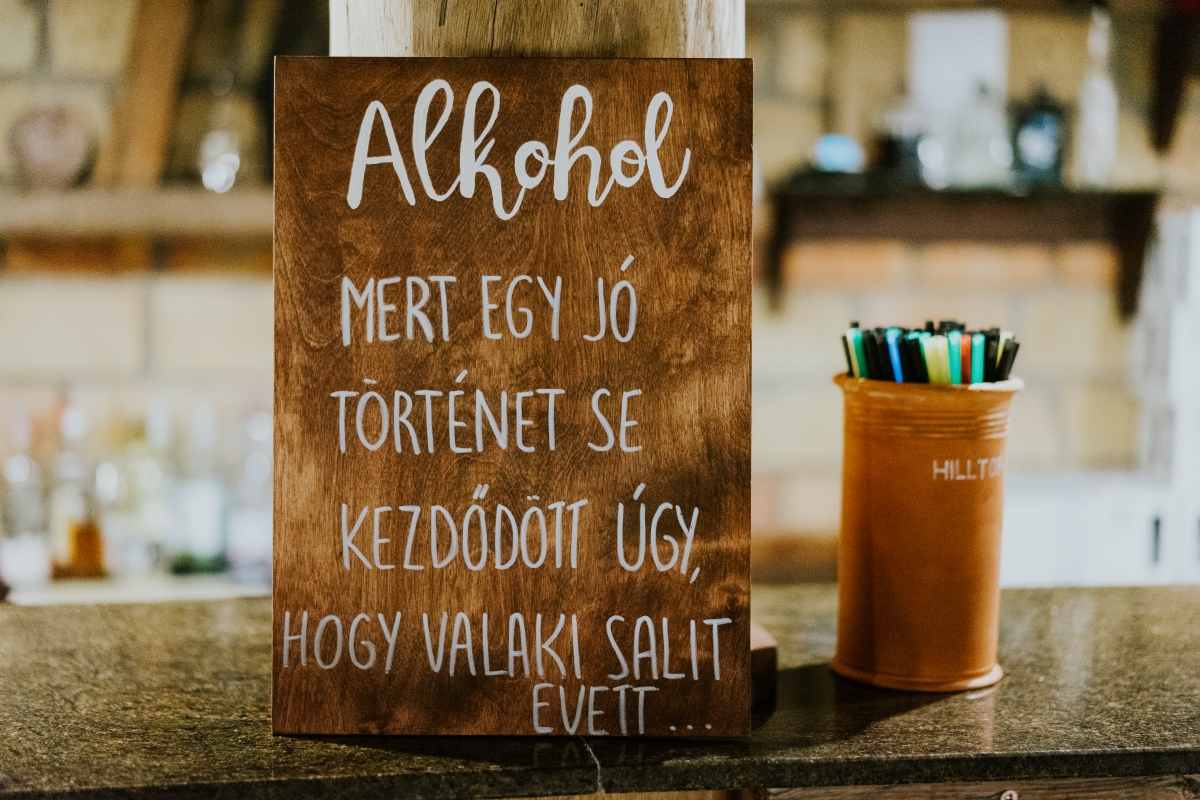 Alkohol
MERT EGY JÓ
TÖRTÉNET SE
KEZDŐDÖTT ÚGY,
HOGY VALAKI SALIT
EVETT...
HILLTOP